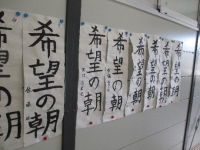 希望の朝
希望の朝
希望の朝
希望の朝
希望の朝
希望の朝
希望の朝
希望の朝